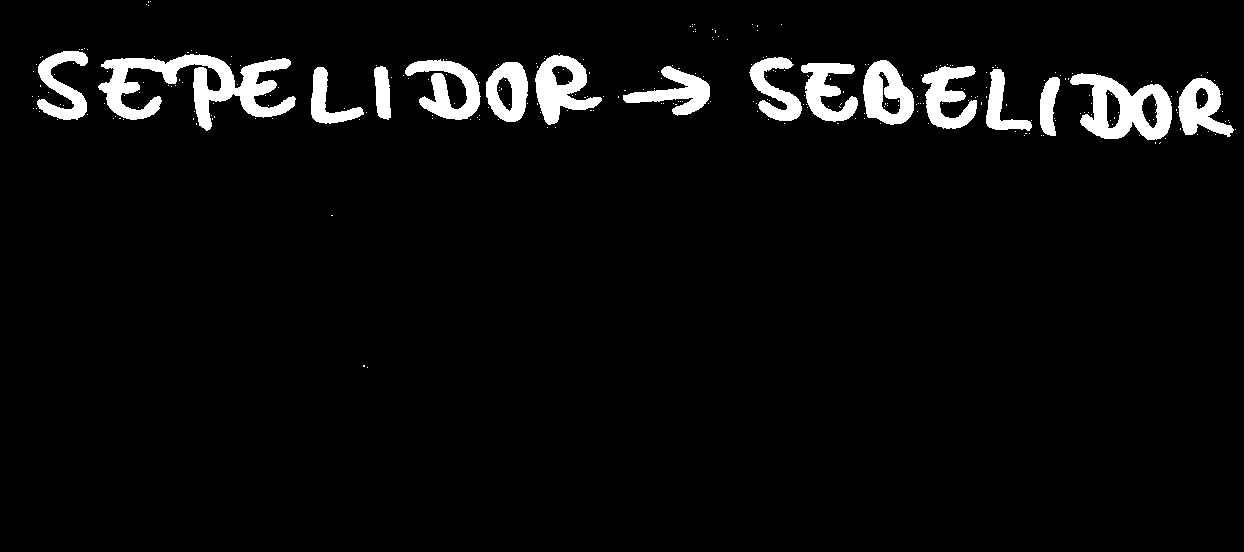 SEPELIDOR → SEBELIDOR